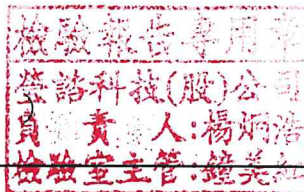 檢驗報告專用章
瑩諮科技(股)公司
負責人:楊炳浩
檢驗室主管:鍾美